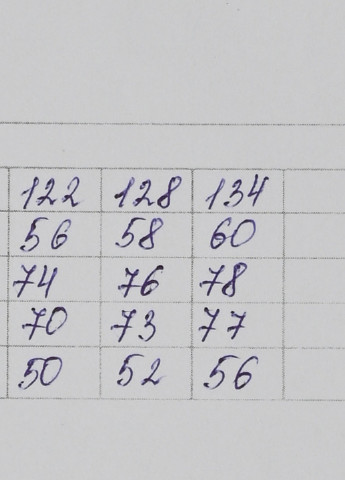 122 128 134
56 58 60
74 76 78
70 73 77
50 52 56